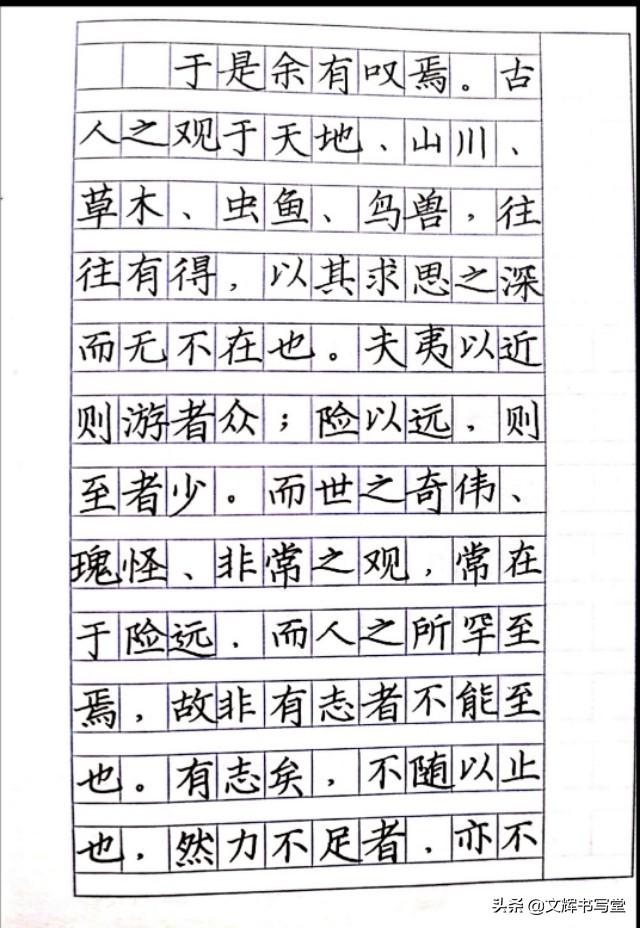 于是余有叹焉。古
人之观于天地、山川、
草木、虫鱼、鸟兽,往
往有得,以其求思之深
而无不在也。夫夷以近
则游者众;险以远,则
至者少。而世之奇伟、
瑰怪、非常之观,常在
于险远.而人之所罕至
焉,故非有志者不能至
也。有志矣,不随以止
也,然力不足者,亦不
头条 @文辉书写堂